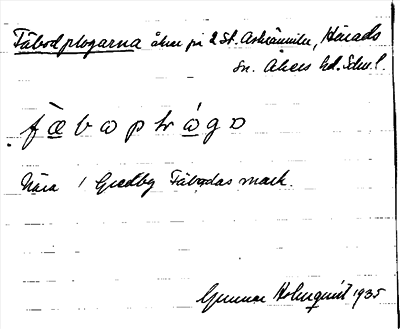 Fäbodplogarna åker på 2 St. Askeåumilu, Härads
sn. Åkers hd. Sdml.
fäbaplrágo
Nära 1 Gredby Fäbodas mark.
Gunnar Holmquist 1935